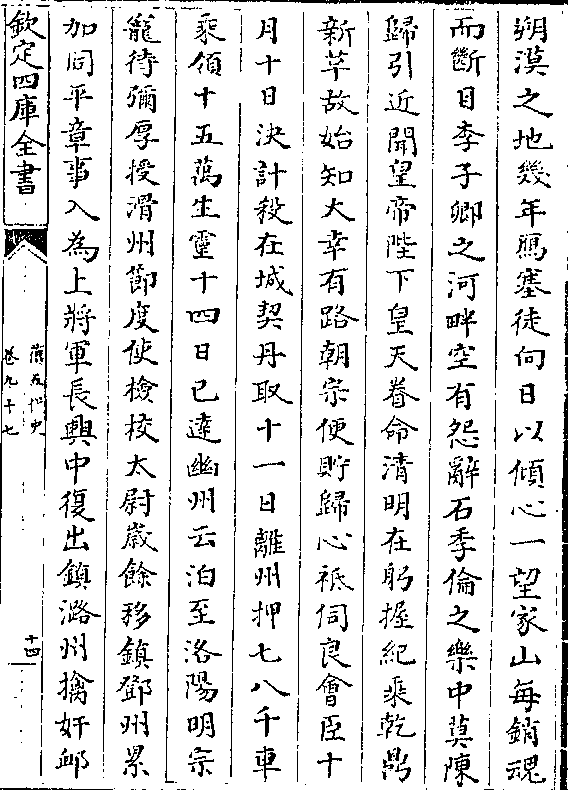 朔漠之地幾年鴈塞徒向日以傾心一望家山每銷魂
而斷目李子卿之河畔空有怨辭石季倫之樂中莫陳
歸引近聞皇帝陛下皇天眷命清明在躬握紀乘乾鼎
新革故始知大幸有路朝宗便貯歸心祗伺良會臣十
月十日決計殺在城契丹取十一日離州押七八千車
乘領十五萬生靈十四日已達幽州云洎至洛陽明宗
寵待彌厚授滑州節度使檢校太尉歲餘移鎮鄧州累
加同平章事入為上將軍長興中復出鎮潞州擒奸邮
欽定四庫全書
舊五代史
卷九十七
十四